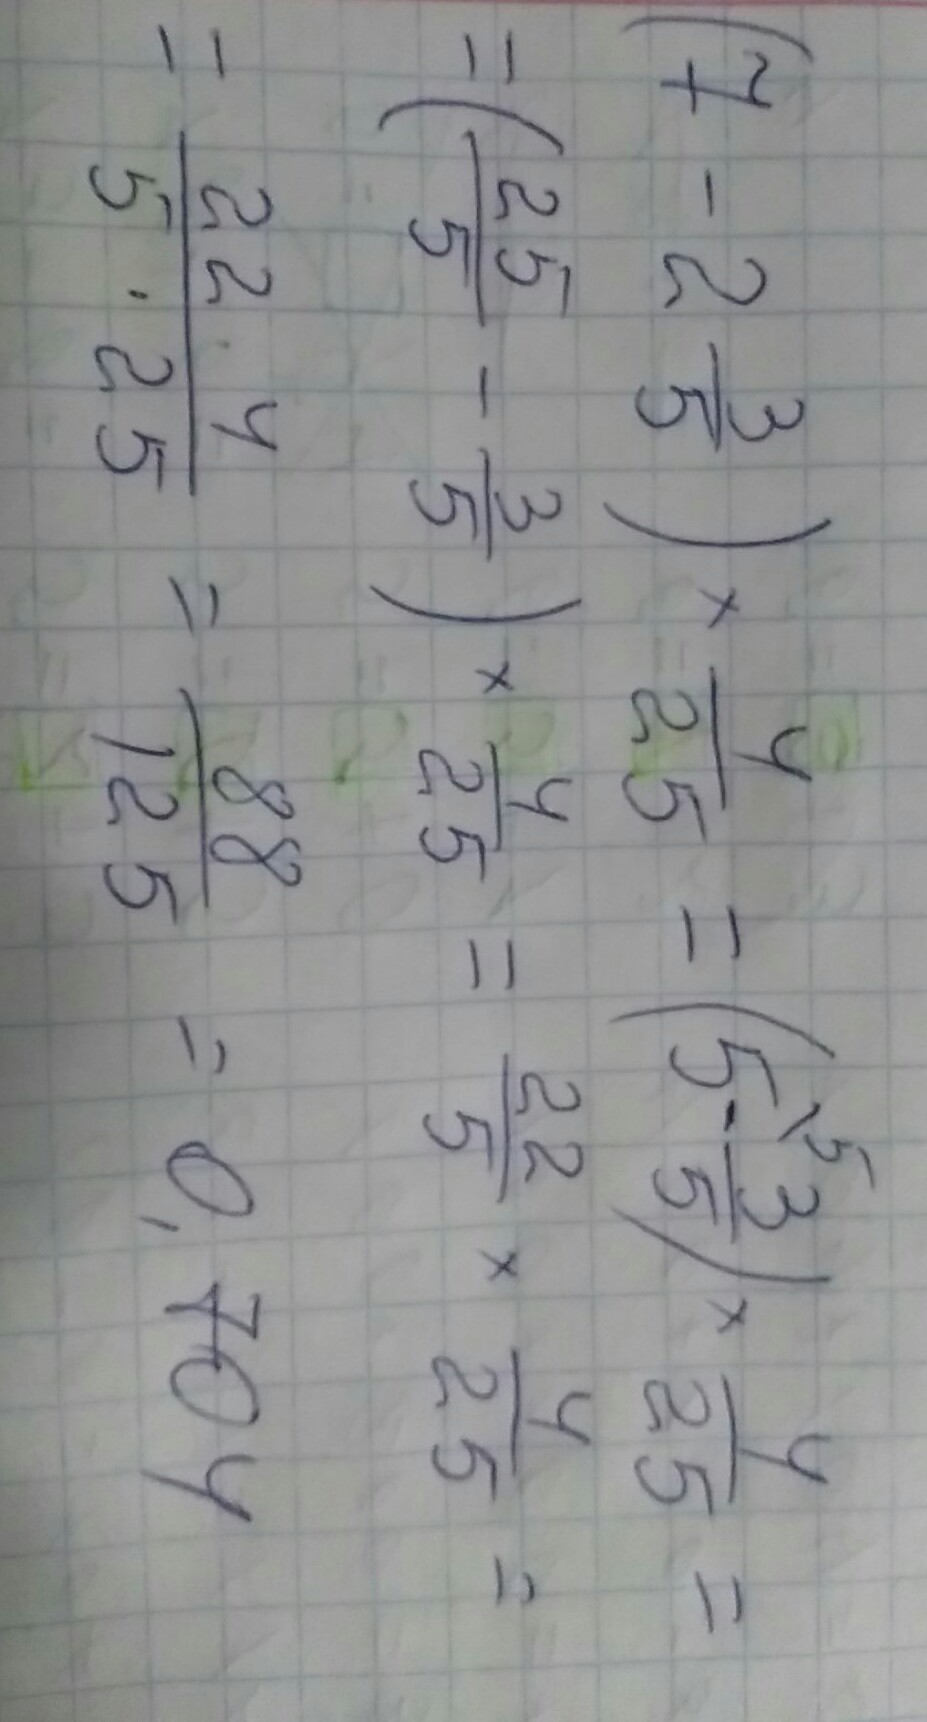 (7 - 2 3/5) × 4/25 = (5\5 - 3/5) × 4/25 =
= (25/5 - 3/5) × 4/25 = 22/5 × 4/25 =
= 22·4/5·25 = 88/125 = 0,704